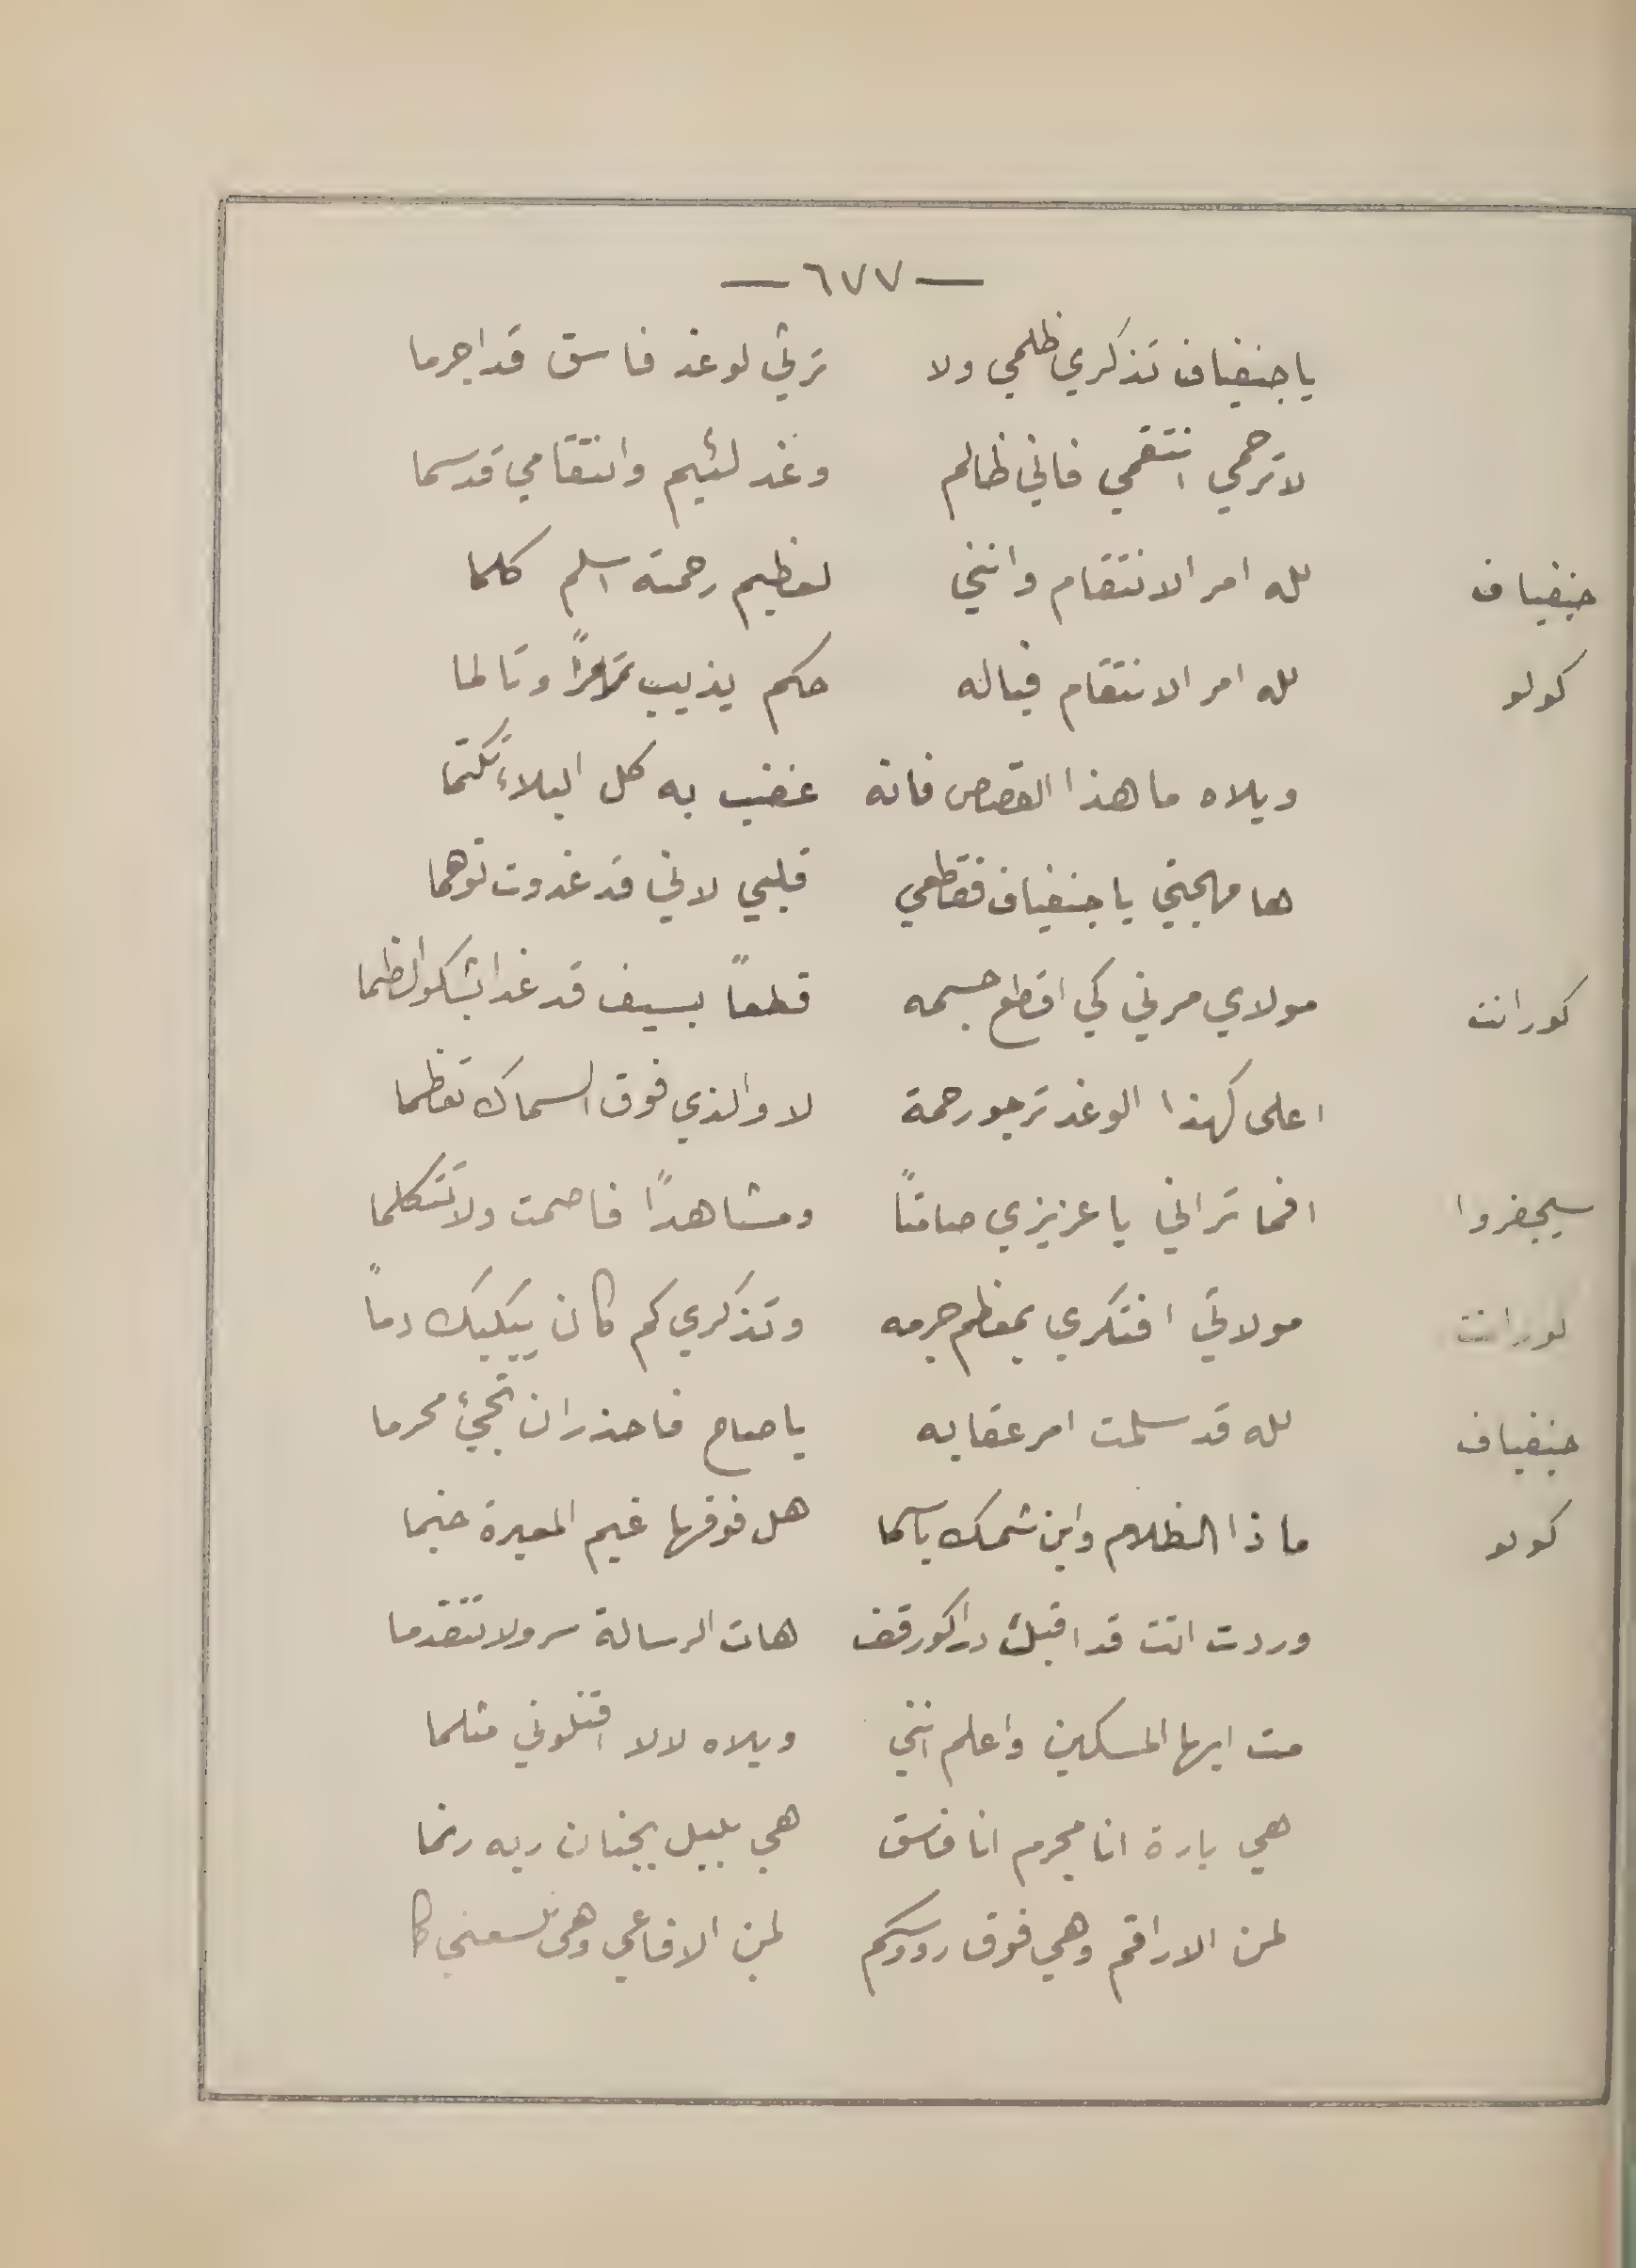 — ٦٧٧ —
يا جنفياف تذكري ظلمي ولا ترثي لوغد فاسق قد اجرما
لا ترحمي انتقمي فاني ظالم وغد لئيم وانتقامي قد سما
جنفياف لله امر الانتقام وانني لعظيم رحمته اسلم كلما
كولو لله امر الانتقام فياله حكم يذيب تمرمرًا وتالما
ويلاه ما هذا القصاص فانه غضب به كل البلاء تكتما
ها مهجتي يا جنفياف فقطعي قلبي لاني قد غدوت توهما
كورانت مولاي مرني كي اقطع جسمه قطعاً بسيف قد غدا يشكو الظما
اعلى كهذا الوغد ترجو رحمة لا والذي فوق السماك تعظما
سيجفروا افما تراني يا عزيزي صامتاً ومشاهدًا فاصمت ولا تتكلما
كورانت مولاتي افتكري بمعظم جرمه وتذكري كم كان يبكيك دماً
جنفياف لله قد سلمت امر عقابه يا صاح فاحذر ان تجيء محرما
كولو ما ذا الظلام واين شمسك يا سما هل فوقها غيم المعيرة خيما
وردت اتت قد اقبلت دراكور قف هات الرسالة سر ولا تتقدما
مت ايها المسكين واعلم انني ويلاه لا لا اقتلوني مثلما
هي بارة انا مجرم انا فاسق هي بلبل بجنان ربه رنما
لمن الاراقم وهي فوق رووسكم لمن الافاعي وهي تلسعني كما